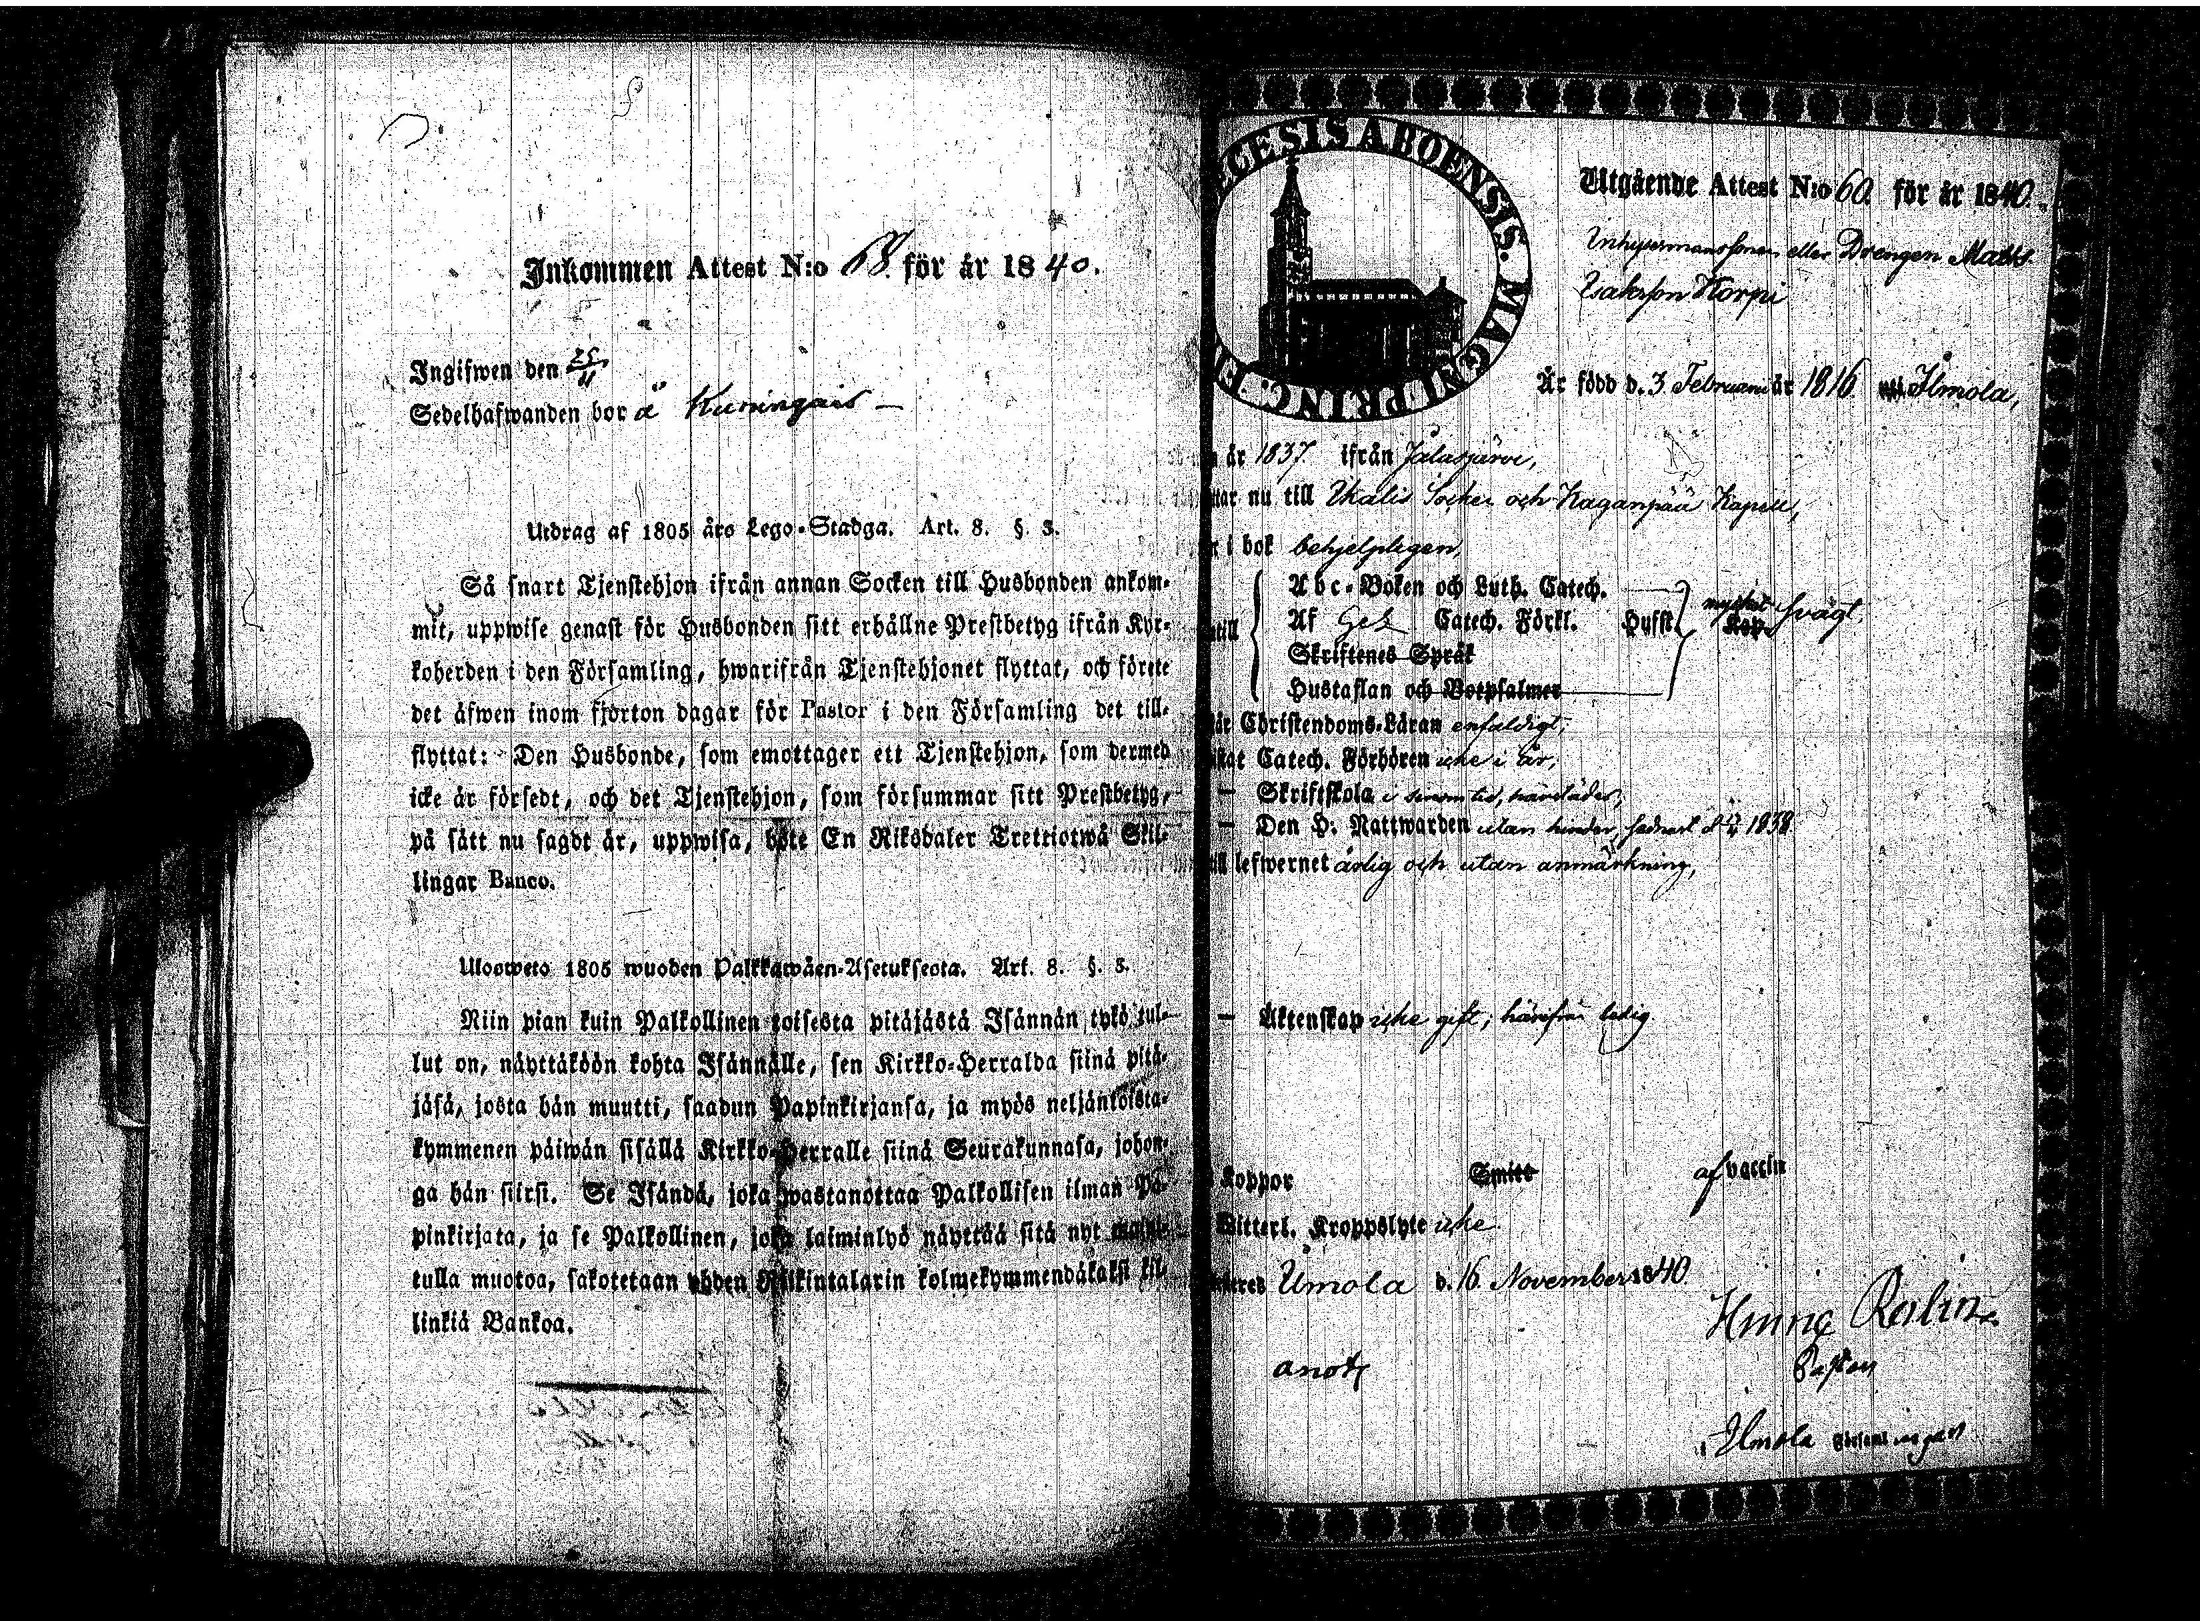 Inkommen Attest N:o 68. för år 1840.
Ingifwen den 25/11
Sedelhafwanden bor å Kuningais
Utdrag af 1805 års Lego-Stadga. Art. 8. §. 3.
Så snart Tjenstehjon ifrån annan Socken till Husbonden ankom-
mit, uppwise genast för Husbonden sitt erhållne Prestbetyg ifrån Kyr-
koherden i den Församling, hwarifrån Tjenstehjonet flyttat, och förete
det äfwen inom fjorton dagar för Pastor i den Församling det till-
flyttat: Den Husbonde, som emottager ett Tjenstehjon, som dermed
icke är försedt, och det Tjenstehjon, som försummar sitt Prestbetyg,
på sätt nu sagdt är, uppwisa, böte En Riksdaler Trettiotwå Skil-
lingar Banco.
Ulosweto 1805 wuoden Palkkawäen-Asetuksesta. Art. 8. §. 3.
Niin pian kuin Palkollinen toisesta pitäjästä Isännän tykö tul-
lut on, näyttäköön kohta Isännälle, sen Kirkko-Herralda siinä pitä-
jäsä, josta hän muutti, saadun Papinkirjansa, ja myös neljäntoista-
kymmenen päiwän sisällä Kirkko-Herralle siinä Seurakunnasa, johon-
ga hän siirsi. Se Isändä, joka wastanottaa Palkollisen ilman Pa-
pinkirjata, ja se Palkollinen, joka laiminlyö näyttää sitä nyt
tulla muotoa, sakotetaan yhden Riikintalarin kolmekymmendäkaksi kil-
linkiä Bankoa.
ECESIS ABOENSIS. MAGNI PRINC. FI
Utgående Attest N:o 60. för år 1840.
Inhysesmanssonen eller Drengen Matts
Isaksson Korpi
Är född d. 3 Februari år 1816. uti Ilmola,
år 1837. ifrån Jalasjärvi,
nu till Ikalis Socken och Kaganpää Kapell,
i bok behjelpligen,
Abc-Boken och Luth. Catech.
till Af Gez Catech. Förkl. Hufst. mycket svagt,
Skriftenes Språk
Hustaflan och Botpsalmer
Christendoms-Läran enfaldigt,
Catech. Förhören icke i år,
— Skriftskola i sinom tid,
— Den H: Nattwarden utan hinder, sednast d. 1838.
till lefwernet ärlig och utan anmärkning,
— Äktenskap icke gift; härifrån ledig.
koppor Smitt af vaccin
Witterl. Kroppslyte icke
Ilmola d. 16. November 1840
Ilmola Församlingars